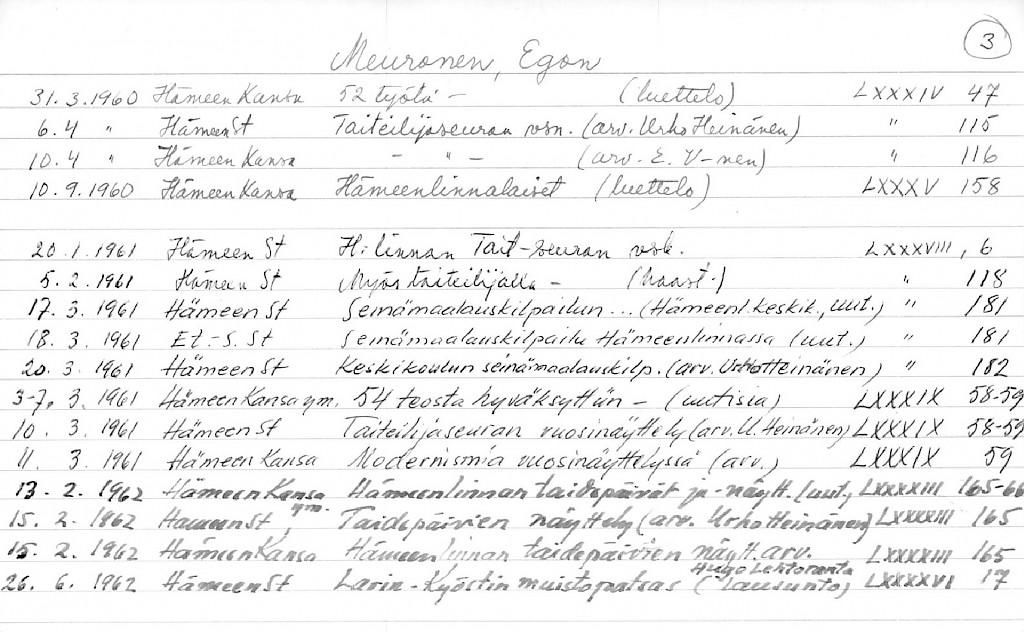 3
Meuronen, Egon
31. 3. 1960 Hämeen Kansa 52 työtä - (luettelo) LXXXIV 47
6. 4 " Hämeen St Taiteilijaseuran vsn. (arv. Urho Heinänen) " 115
10. 4 " Hämeen Kansa - " - (arv. E. V-nen) " 116
10. 9. 1960 Hämeen Kansa Hämeenlinnalaiset (luettelo) LXXXV 158
20. 1. 1961 Hämeen St H:linnan Tait-seuran vsk. LXXXVIII, 6
5. 2. 1961 Hämeen St Myös taiteilijalla - (haast.) " 118
17. 3. 1961 Hämeen St Seinämaalauskilpailun ... (Hämeenl. keskik., uut.) " 181
18. 3. 1961 Et.-S. St Seinämaalauskilpailu Hämeenlinnassa (uut.) " 181
20. 3. 1961 Hämeen St Keskikoulun seinämaalauskilp. (arv. Urho Heinänen) " 182
3-7. 3. 1961 Hämeen Kansa ym. 54 teosta hyväksyttiin - (uutisia) LXXXIX 58-59
10. 3. 1961 Hämeen St Taiteilijaseuran vuosinäyttely (arv. U. Heinänen) LXXXIX 58-59
11. 3. 1961 Hämeen Kansa Modernismia vuosinäyttelyssä (arv.) LXXXIX 59
13. 2. 1962 Hämeen Kansa ym. Hämeenlinnan taidepäivät ja -näytt. (uut.) LXXXXIII 165-66
15. 2. 1962 Hämeen St Taidepäivien näyttely (arv. Urho Heinänen) LXXXXIII 165
15. 2. 1962 Hämeen Kansa Hämeenlinnan taidepäivien näytt. arv. LXXXXIII 165
26. 6. 1962 Hämeen St Larin-Kyöstin muistopatsas (Hugo Lehtoranta lausunto) LXXXXVI 17